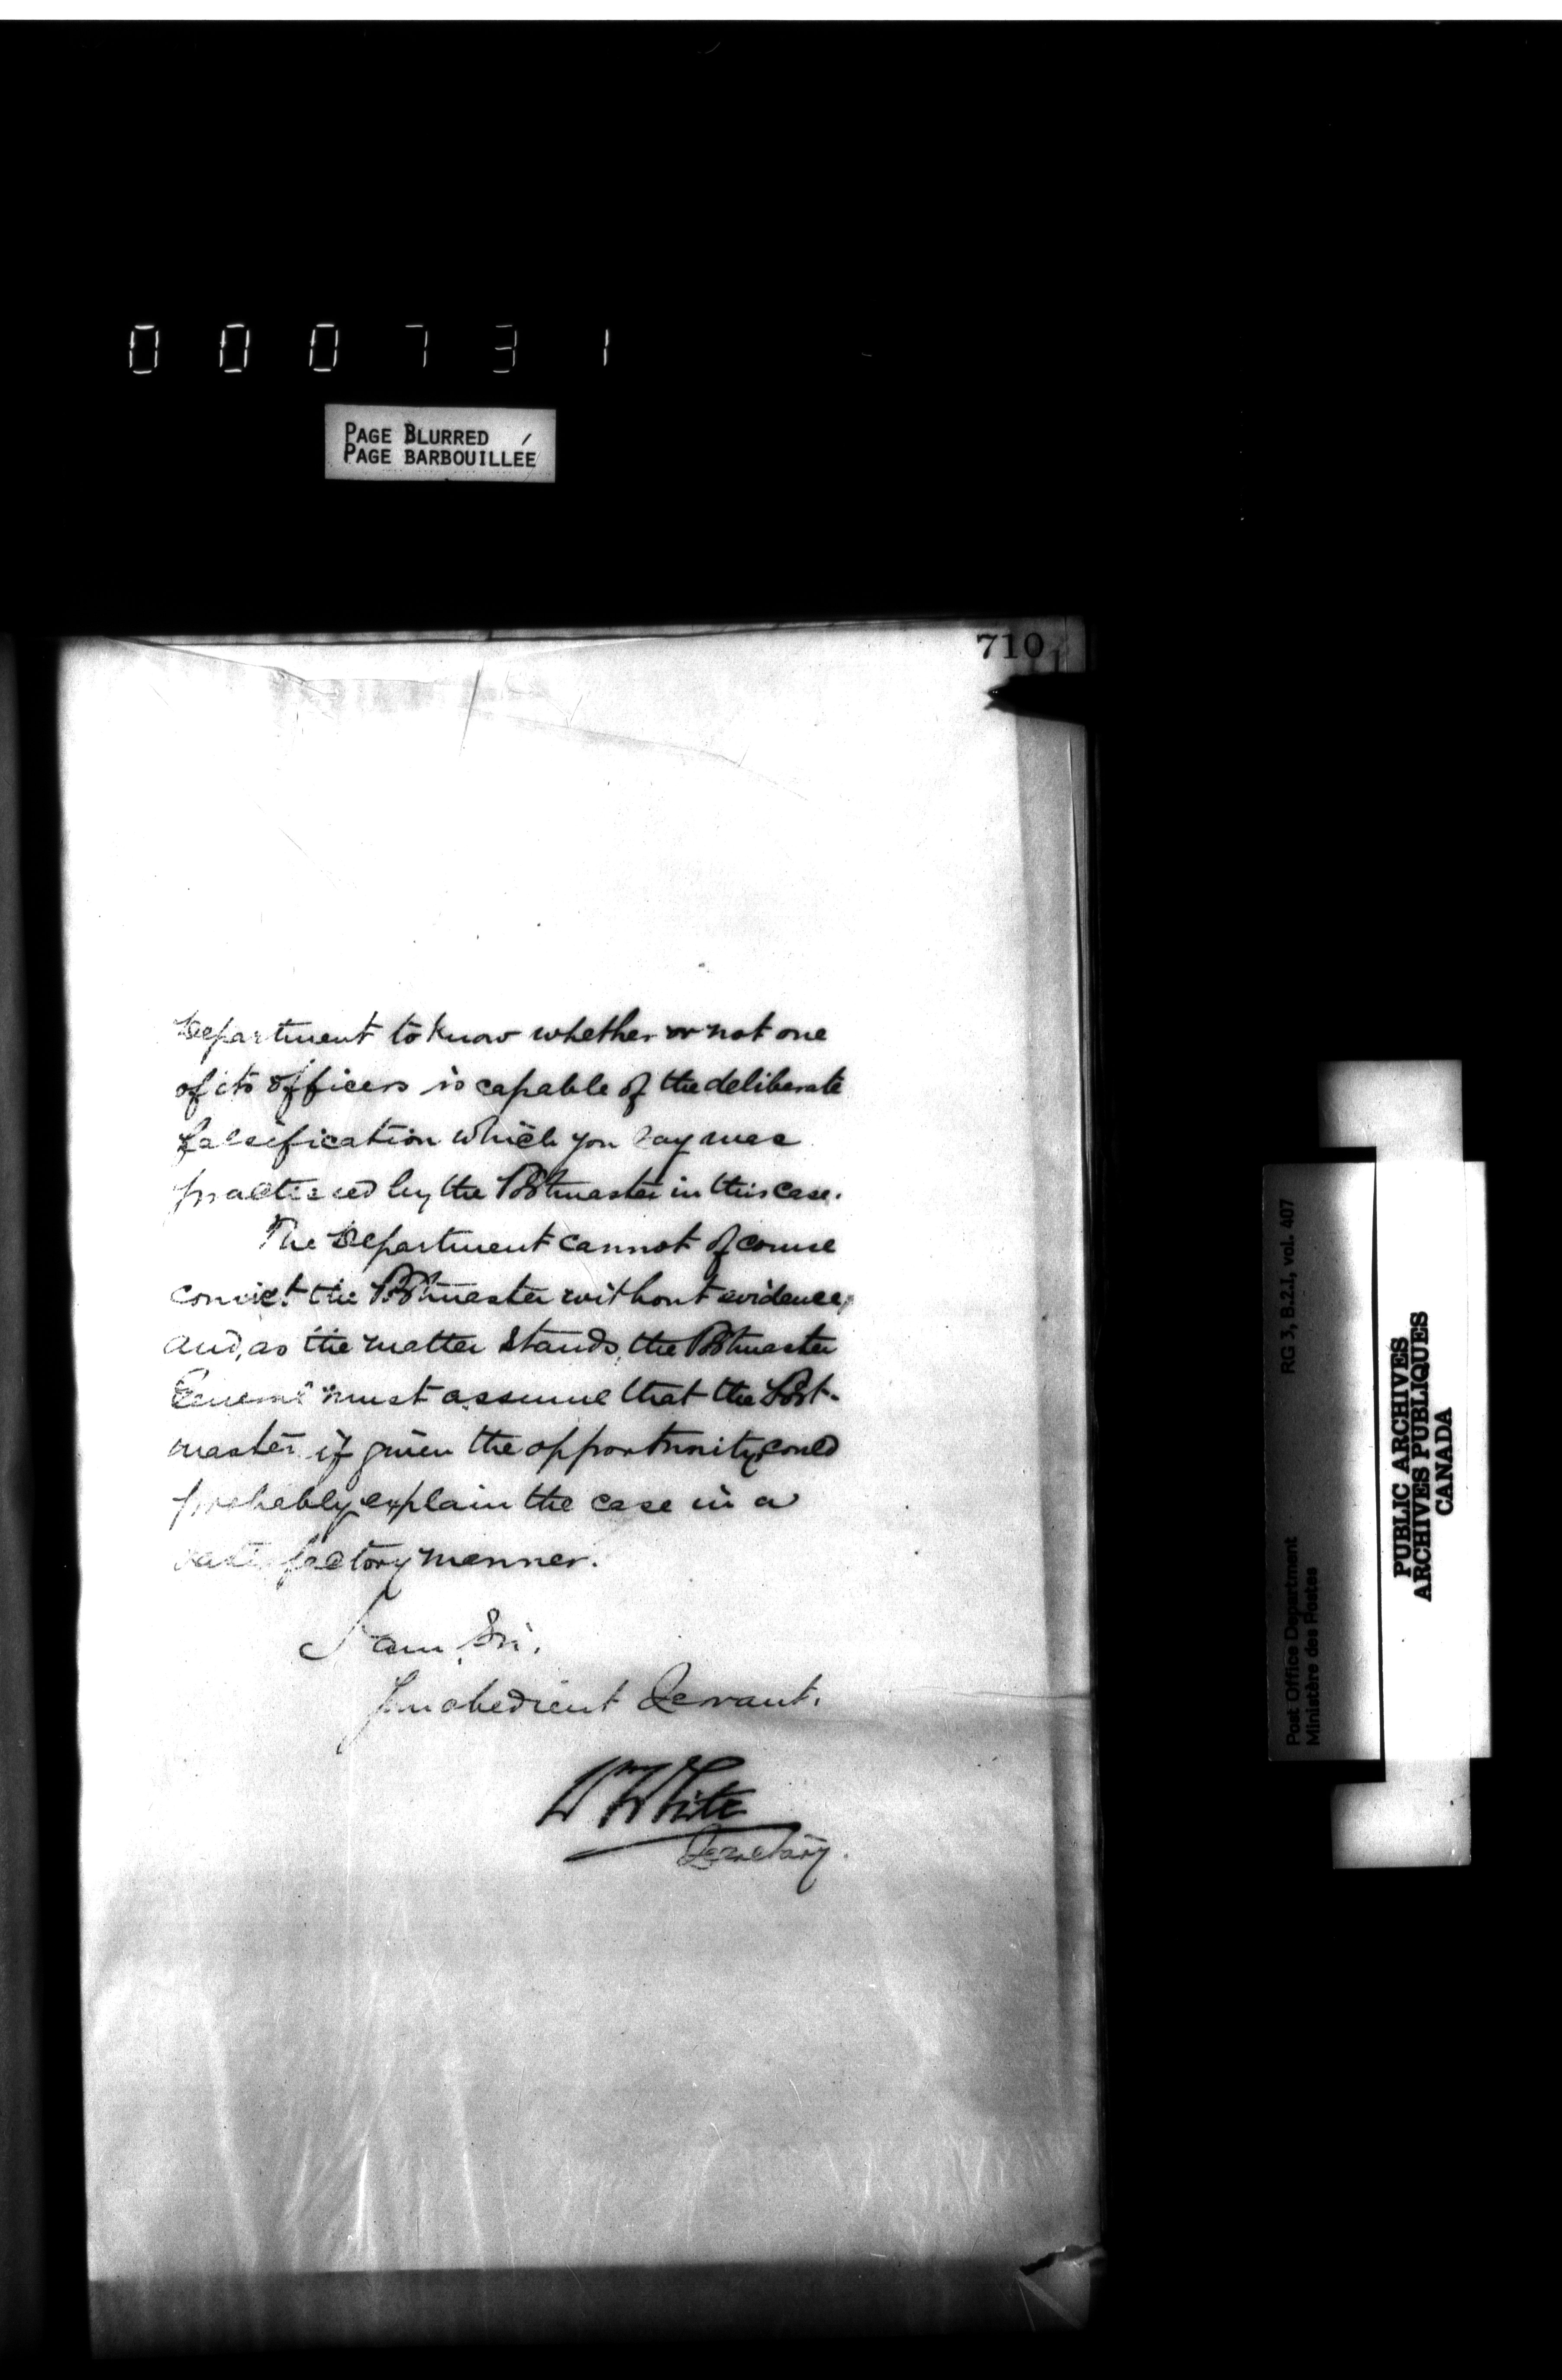 000731
PAGE BLURRED
PAGE BARBOUILLÉE
710
Department to know whether or not one
of its officers is capable of the deliberate
falsification which you say was
practised by the Postmaster in this case.
The Department cannot of course
convict the Postmaster without evidence,
and, as the matter stands, the Postmaster
General must assume that the Post-
master, if given the opportunity, could
probably explain the case in a
satisfactory manner.
I am, Sir,
Your obedient Servant,
Wm White
Secretary.
Post Office Department
Ministère des Postes
RG 3, B.2.I, vol. 407
PUBLIC ARCHIVES
ARCHIVES PUBLIQUES
CANADA